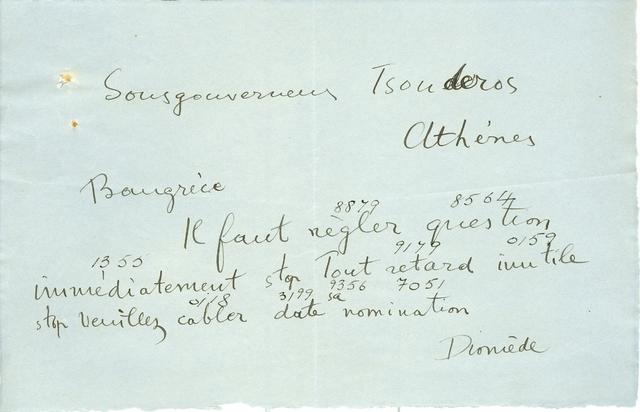 Sousgouverneur Tsouderos
Athénes
Bangrèce
8879 8564
Il faut règler question
1355 9179 0159
immédiatement stop Tout retard inutile
0118 3199 9356 7051
stop veuillez cabler date sa nomination
Diomède